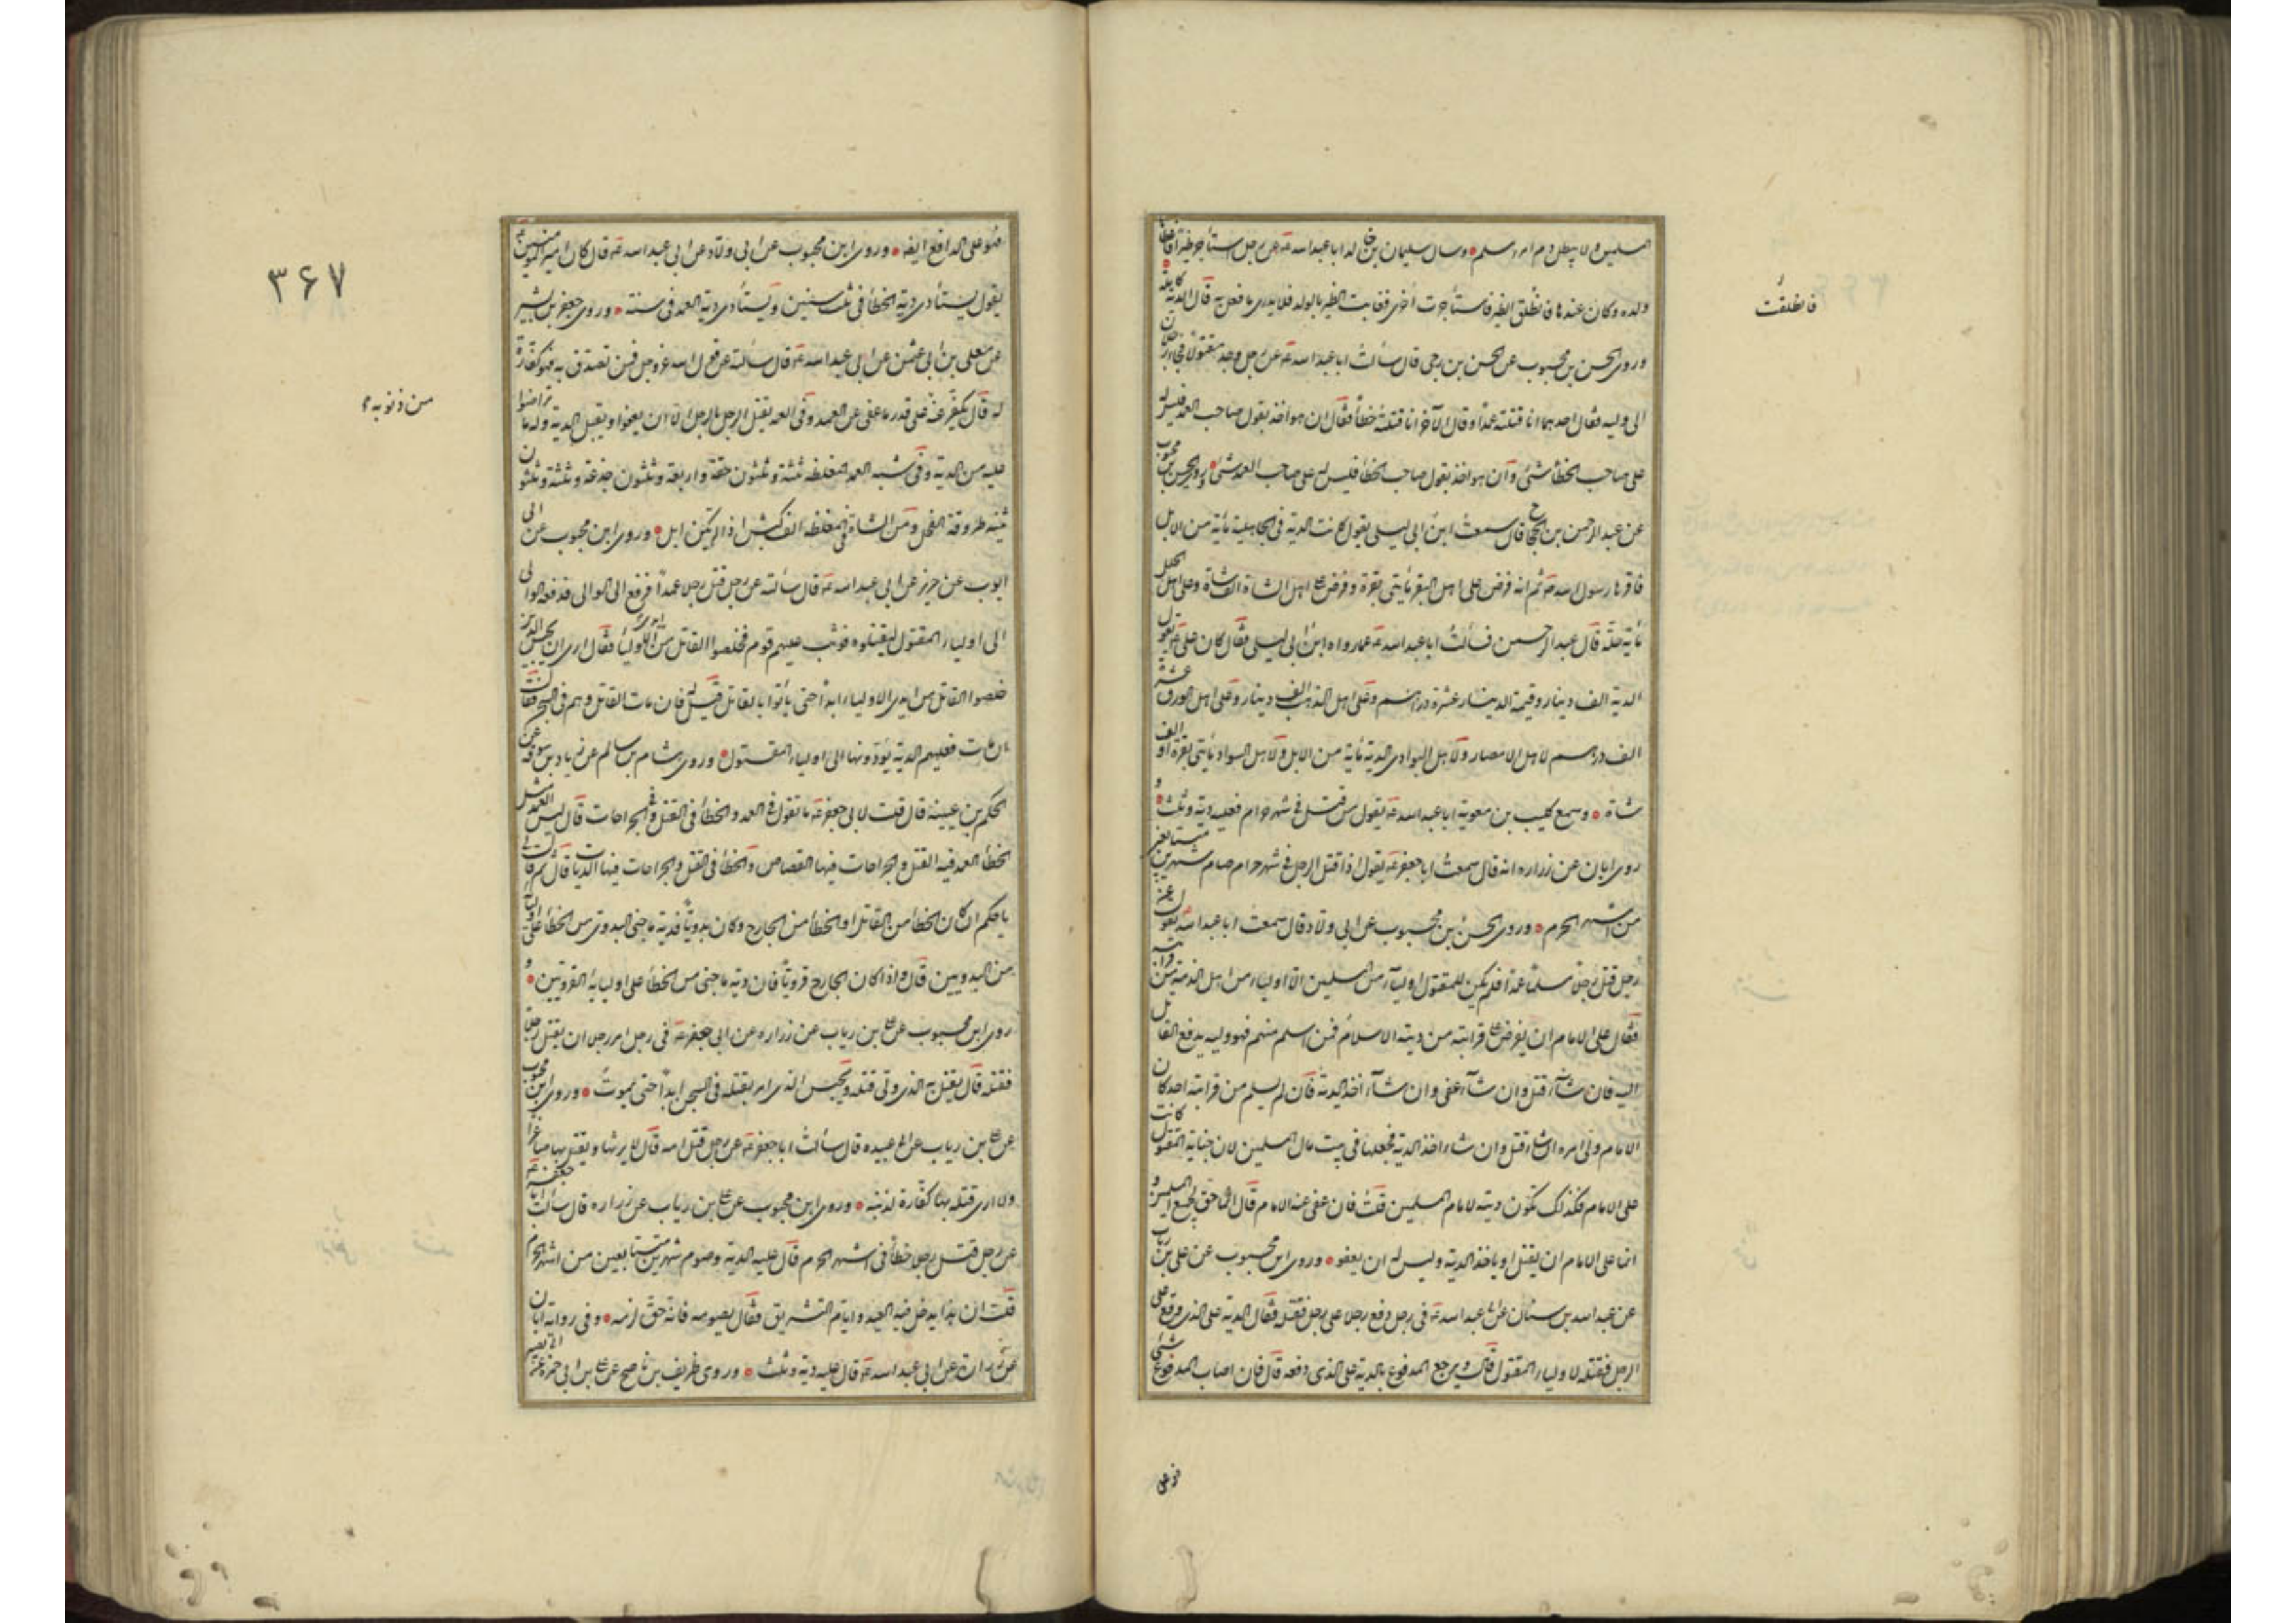 المسلمين ولا يبطل دم امرء مسلم وسال سليمان بن خالد ابا عبد الله عه عن رجل استأجر ظئرا فاعطاها
ولده وكان عندها فانطلق الظئر فاستأجرت أخرى فغابت الظئر بالولد فلا يدرى ما فعل به قال الدية كاملة
فانطلقت
وروى الحسن بن محبوب عن الحسن بن حى قال سألت ابا عبد الله عه عن رجل وجد مقتولا فجاء رجلان
الى وليه فقال احدهما انا قتلته عمدا وقال الآخر انا قتلته خطأ فقال ان هو اخذ بقول صاحب العمد فليس له
على صاحب الخطأ شئ وان هو اخذ بقول صاحب الخطأ فليس له على صاحب العمد شئ وروى الحسن بن محبوب
عن عبد الرحمن بن الحجاج قال سمعت ابن ابى ليلى يقول كانت الدية فى الجاهلية مأية من الابل
فاقرها رسول الله ص ثم انه فرض على اهل البقر مأيتى بقرة وفرض على اهل الشاة الف شاة وعلى اهل الحلل
مأية حلة قال عبد الرحمن فسألت ابا عبد الله عه عما رواه ابن ابى ليلى فقال كان على عه يقول
الدية الف دينار وقيمة الدينار عشرة دراهم وعلى اهل الذهب الف دينار وعلى اهل الورق عشرة
الف درهم لاهل الامصار ولاهل البوادى الدية مأية من الابل ولاهل السواد مأيتى بقرة او الف
شاة وسمع كليب بن معوية ابا عبد الله عه يقول من قتل فى شهر حرام فعليه دية وثلث و
روى ابان عن زراره انه قال سمعت ابا جعفر عه يقول اذا قتل الرجل فى شهر حرام صام شهرين متتابعين
من اشهر الحرم وروى الحسن بن محبوب عن ابى ولاد قال سمعت ابا عبد الله يقول عن
رجل قتل رجلا مسلما عمدا فلم يكن للمقتول اوليآء من المسلمين الا اولياء من اهل الذمة من قرابته
فقال على الامام ان يعرض على قرابته من ديته الاسلام فمن اسلم منهم فهو وليه يدفع القاتل
اليه فان شآء قتل وان شآء عفى وان شآء اخذ الدية فان لم يسلم من قرابته احد كان
الامام ولى امره ان شاء قتل وان شاء اخذ الدية فجعلها فى بيت مال المسلمين لان جناية المقتول كانت
على الامام فكذلك تكون ديته لامام المسلمين قلت فان عفى عنه الامام قال انما حق لجميع المسلمين و
انما على الامام ان يقتل او ياخذ الدية وليس له ان يعفو وروى ابن محبوب عن على بن رياب
عن عبد الله بن سنان عن ابى عبد الله عه فى رجل دفع رجلا على رجل فقتله فقال الدية على الذى وقع على
الرجل فقتله لاولياء المقتول قال ويرجع المدفوع بالدية على الذى دفعه قال فان اصاب المدفوع شئ
فهو على
٣۶٧
فهو على الدافع ايضا وروى ابن محبوب عن ابى ولاد عن ابى عبد الله عه قال كان امير المؤمنين عه
يقول يستأدى دية الخطأ فى ثلث سنين ويستأدى دية العمد فى سنة وروى جعفر بن بشير
عن معلى بن ابى عثمن عن ابى عبد الله عه قال سألته عن قول الله عز وجل فمن تصدق به فهو كفارة
له قال يكفر عنه على قدر ما عفى عن العمد وفى العمد يقتل الرجل بالرجل الا ان يعفوا ويقبل الدية وله ما تراضوا
من ذنوبه
عليه من الدية وفى شبه العمد المغلظة ثلثة وثلثون حقة واربعة وثلثون جذعة وثلثة وثلثون
ثنية طروقة الفحل ومن الشاة فى المغلظة الف كبش اذا لم يكن ابل وروى ابن محبوب عن ابى
ايوب عن حريز عن ابى عبد الله عه قال سألته عن رجل قتل رجلا عمدا فرفع الى الوالى فدفعه الوالى
الى اولياء المقتول ليقتلوه فوثب عليهم قوم فخلصوا القاتل من ايدى الاوليآء فقال ارى ان يحبس الذين
خلصوا القاتل من ايدى الاولياء ابدا حتى يأتوا بالقاتل قيل له فان مات القاتل وهم فى السجن فقال
ان مات فعليهم الدية يؤدونها الى اولياء المقتول وروى هشام بن سالم عن زياد بن سوقه عن
الحكم بن عيينه قال قلت لابى جعفر عه ما تقول فى العمد والخطأ فى القتل والجراحات قال ليس العمد مثل
الخطأ العمد فيه القتل والجراحات فيها القصاص والخطأ فى القتل والجراحات فيها الديات قال ثم قال لى
يا حكم اذا كان الخطأ من القاتل او الخطأ من الجارح وكان بدويا فدية ما جنى البدوى من الخطأ على اوليائه
من البدويين قال واذا كان الجارح قرويا فان دية ما جنى من الخطأ على اوليايه القرويين و
روى ابن محبوب عن على بن رياب عن زراره عن ابى جعفر عه فى رجل امر رجلا ان يقتل رجلا
فقتله قال يقتل به الذى ولى قتله ويحبس الذى امر بقتله فى السجن ابدا حتى يموت وروى ابن محبوب
عن على بن رياب عن ابى عبيده قال سألت ابا جعفر عه عن رجل قتل امه قال لا يرثها ويقتل بها صاغرا
ولا ارى قتله بها كفارة لذنبه وروى ابن محبوب عن على بن رياب عن زراره قال سألت ابا جعفر عه
عن رجل قتل رجلا خطأ فى اشهر الحرم قال عليه الدية وصوم شهرين متتابعين من اشهر الحرم
قلت ان هذا يدخل فيه العيد وايام التشريق فقال يصومه فانه حق لزمه وفى رواية ابان
عن زرارة عن ابى عبد الله عه قال عليه دية وثلث وروى ظريف بن ناصح عن على بن ابى حمزه عن ابى بصير